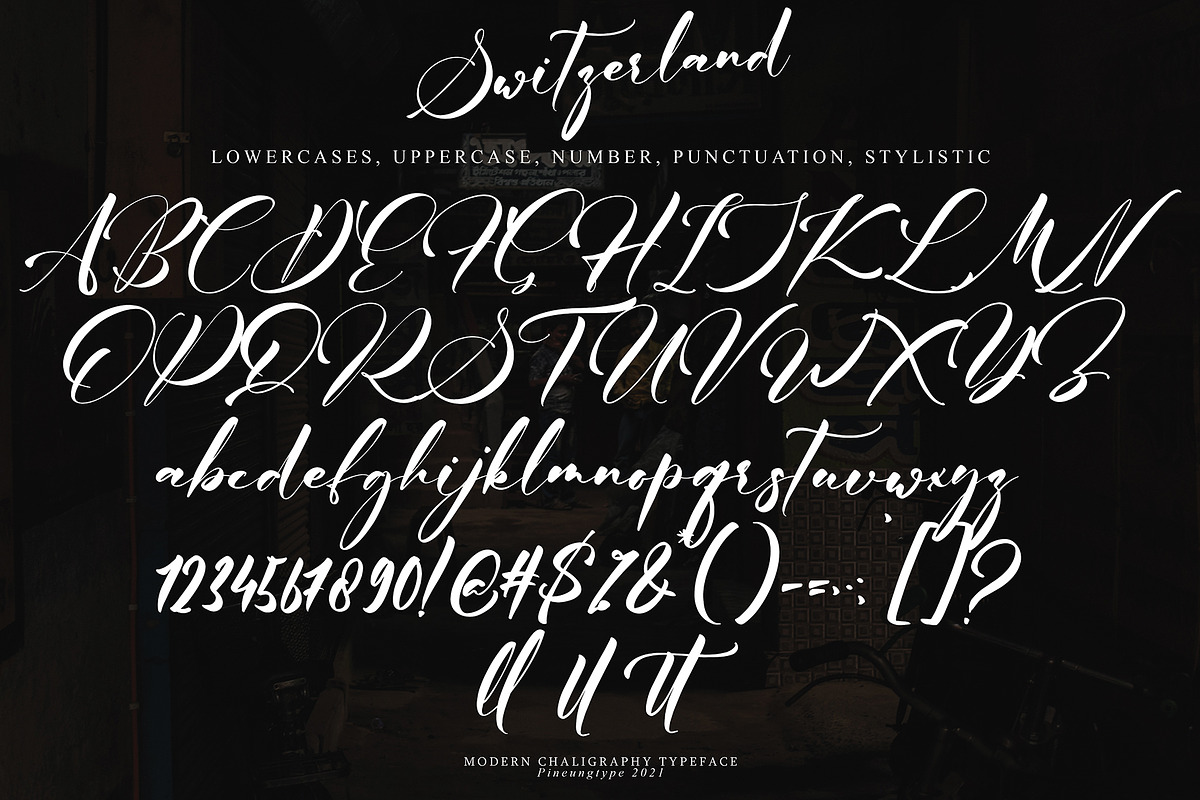 Switzerland
LOWERCASES, UPPERCASE, NUMBER, PUNCTUATION, STYLISTIC
ABCDEFGHIJKLMN
OPQRSTUVWXYZ
abcdefghijklmnopqrstuvwxyz
1234567890!@#$%&*()-=,.:;'[]?
ll ll tt
MODERN CHALIGRAPHY TYPEFACE
Pineungtype 2021